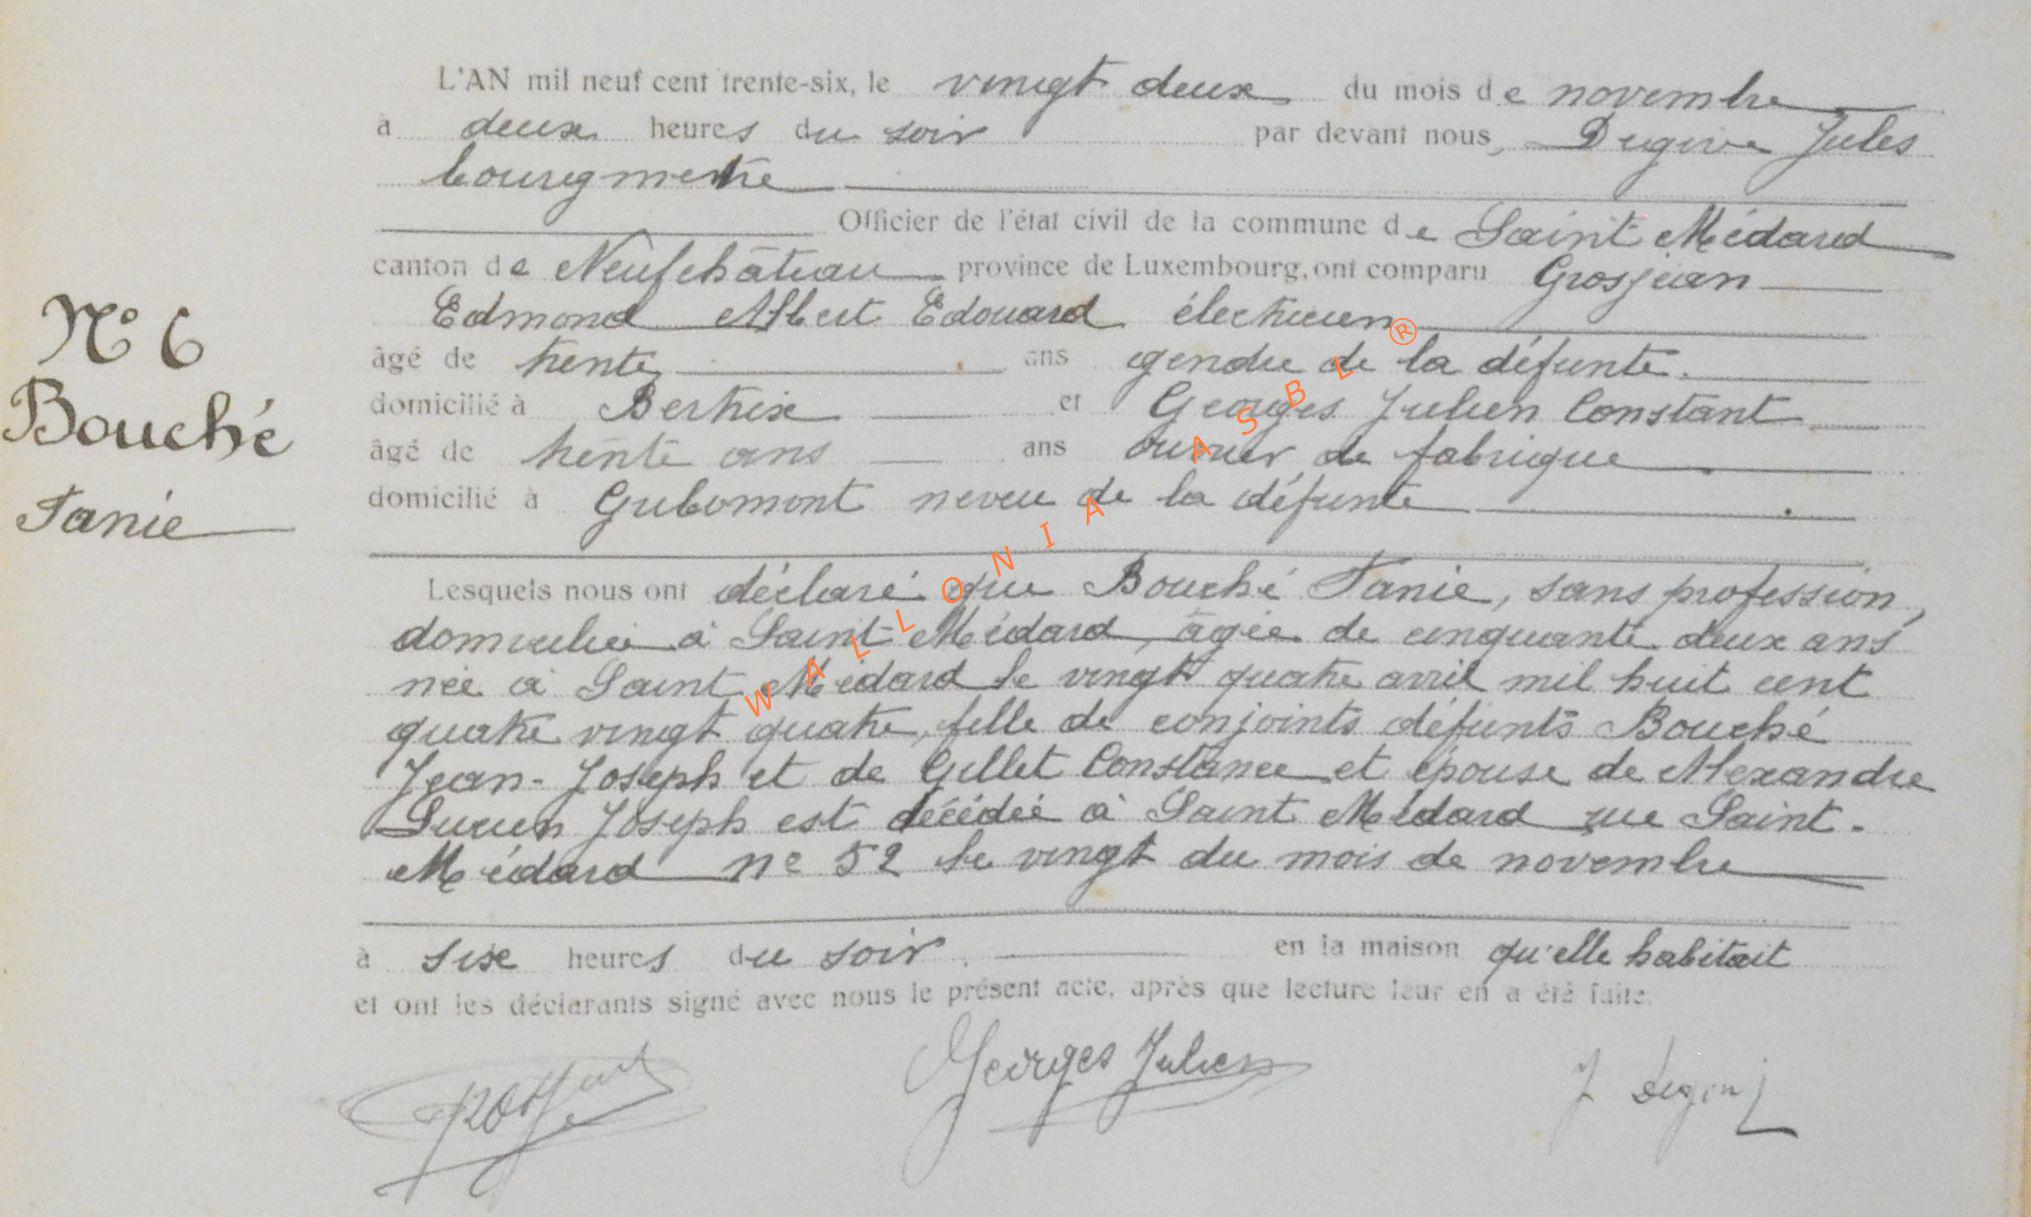 L'AN mil neuf cent trente-six, le vingt deux du mois de novembre
à deux heures du soir par devant nous, Dugive Jules
bourgmestre
Officier de l'état civil de la commune de Saint Médard
canton de Neufchâteau province de Luxembourg, ont comparu Grosjean
Edmond Albert Edouard électricien
âgé de trente ans gendre de la défunte.
domicilié à Bertrix et Georges Julien Constant
âgé de trente ans ans ouvrier de fabrique
domicilié à Gribomont neveu de la défunte
N° 6
Bouché
Fanie
Lesquels nous ont déclaré que Bouché Fanie, sans profession,
domiciliée à Saint-Médard, âgée de cinquante deux ans
née à Saint Médard le vingt quatre avril mil huit cent
quatre vingt quatre, fille de conjoints défunts Bouché
Jean-Joseph et de Gillet Constance et épouse de Alexandre
Lucien Joseph est décédée à Saint Médard rue Saint-
Médard n° 52 le vingt du mois de novembre
à sixe heures du soir. en la maison qu'elle habitait
et ont les déclarants signé avec nous le présent acte, après que lecture leur en a été faite.
Georges Julien
WALLONIA ASBL ®